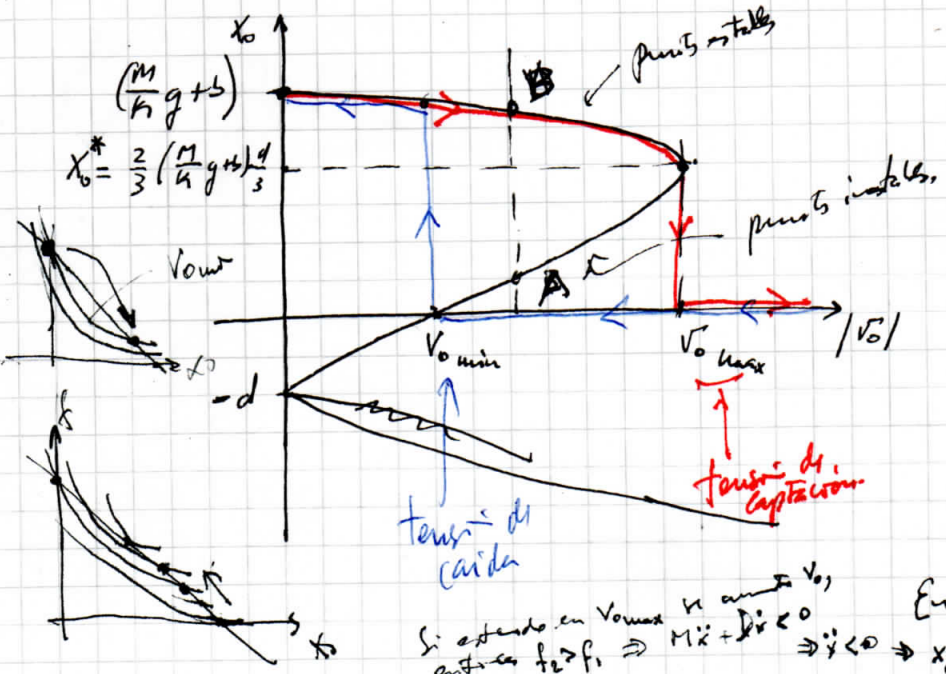 x₀
(M/k g+b)
B
puntos estables
x₀* = 2/3 (M/k g+b) d/3
puntos inestables.
A
x₀
V₀ min
V₀ max
|V₀|
-d
tensión de captación.
tensión de caida
x₀
Si estando en V₀max se aumenta V₀,
entonces f₂>f₁ ⇒ Mẍ + Dẋ < 0
⇒ ẋ<0 ⇒ x